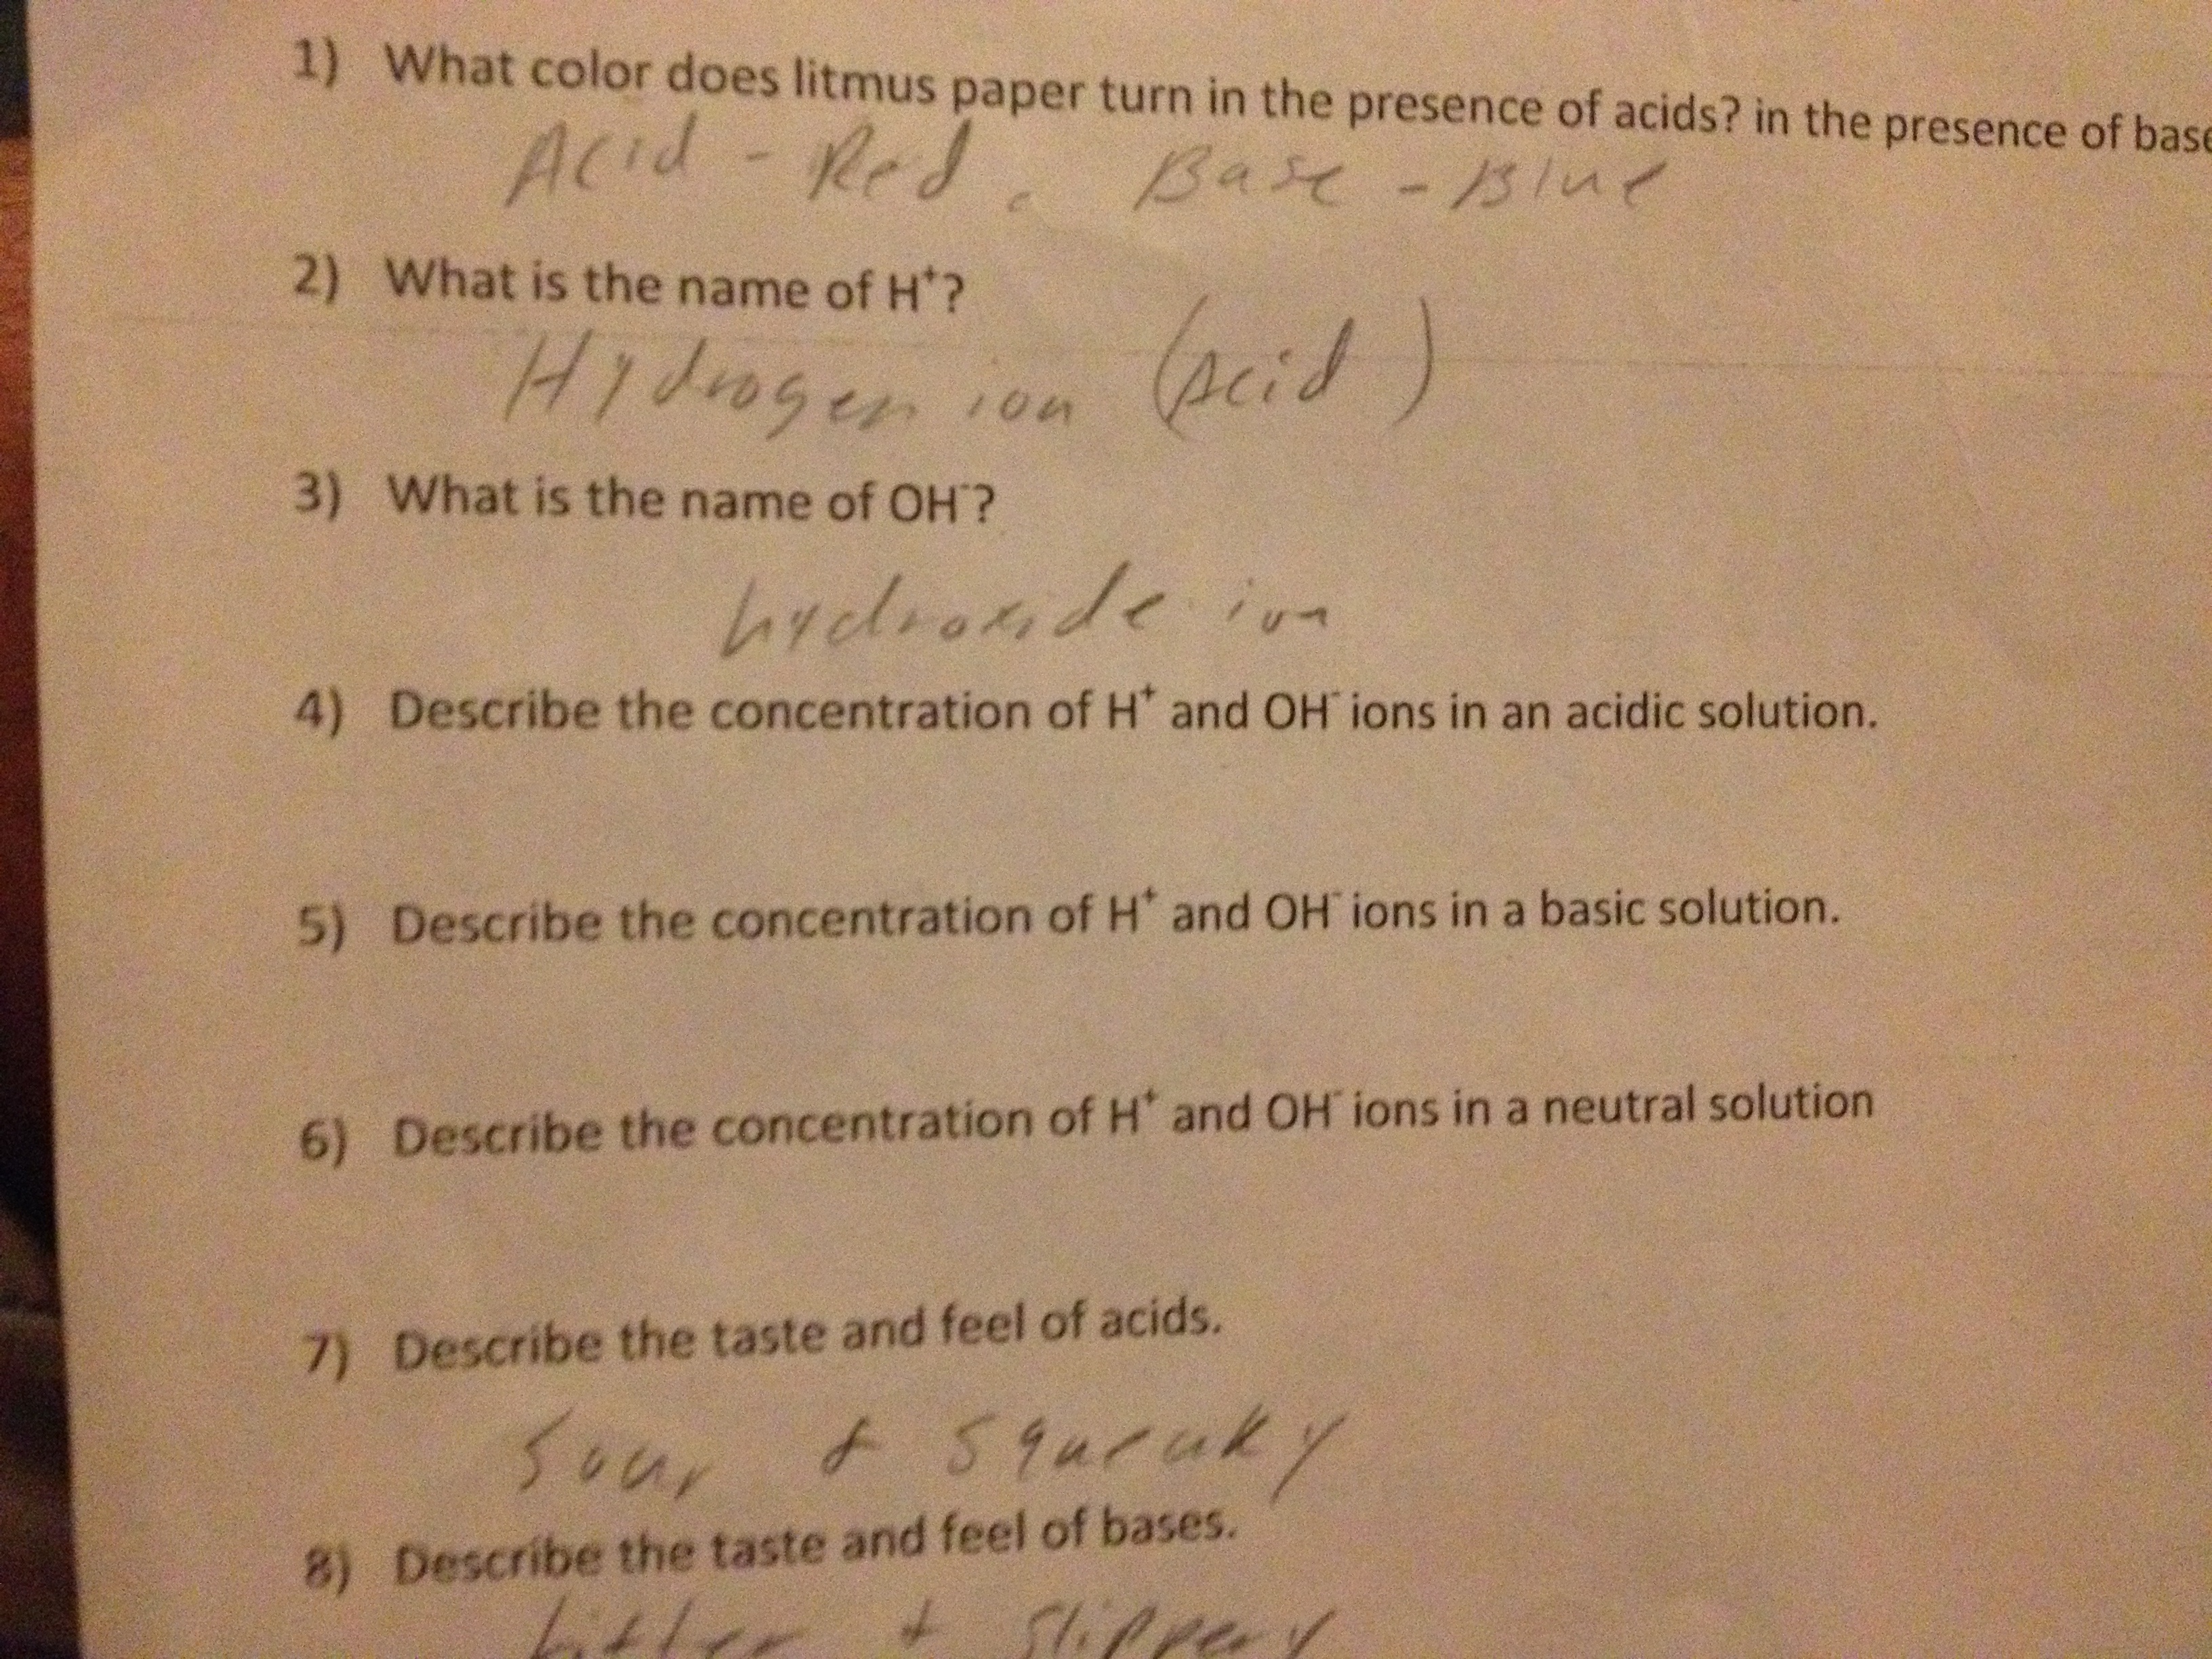 1) What color does litmus paper turn in the presence of acids? in the presence of base
Acid - Red. Base - Blue
2) What is the name of H⁺?
Hydrogen ion (Acid)
3) What is the name of OH⁻?
hydroxide ion
4) Describe the concentration of H⁺ and OH⁻ ions in an acidic solution.
5) Describe the concentration of H⁺ and OH⁻ ions in a basic solution.
6) Describe the concentration of H⁺ and OH⁻ ions in a neutral solution
7) Describe the taste and feel of acids.
Sour + squeuky
8) Describe the taste and feel of bases.
bitter + slippery